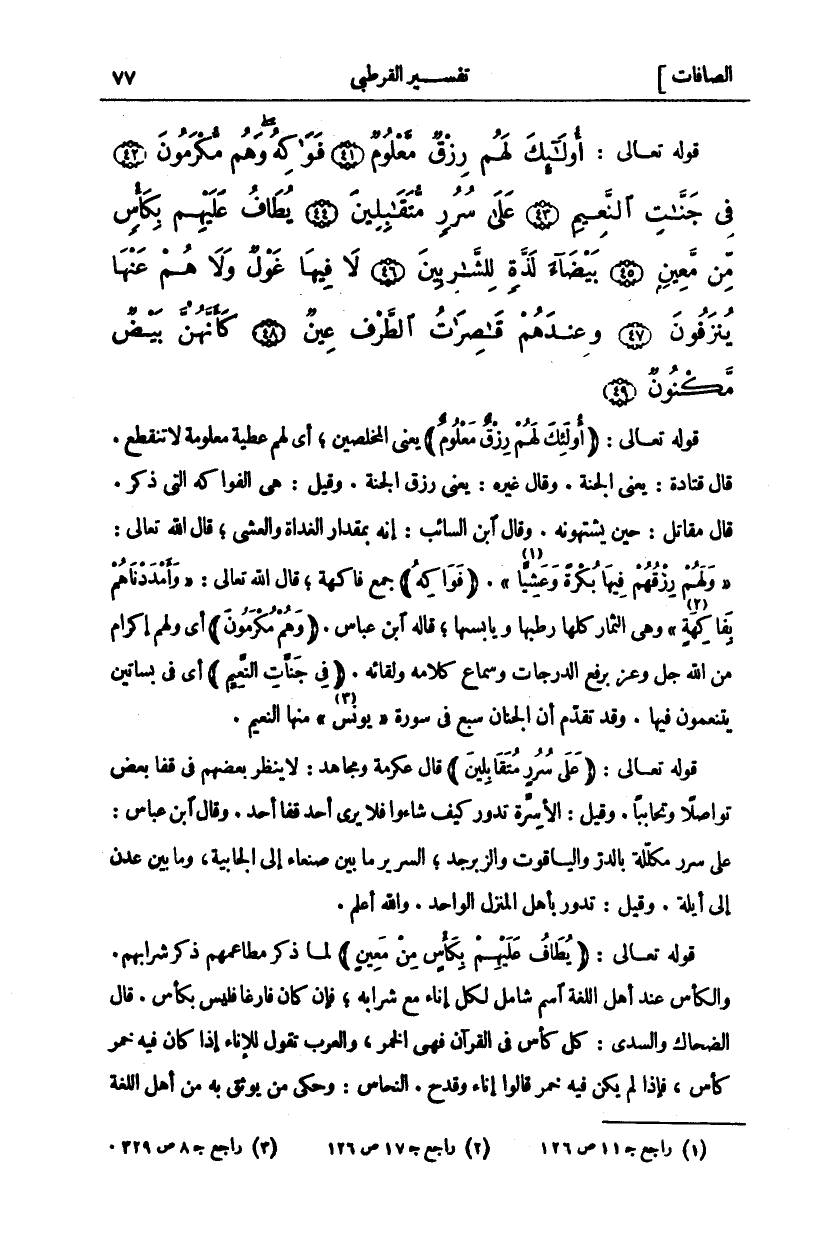 الصافات ] تفسير القرطبي ٧٧
قوله تعالى : أُوْلَٰٓئِكَ لَهُمْ رِزْقٌ مَّعْلُومٌ ﴿٤١﴾ فَوَٰكِهُ وَهُم مُّكْرَمُونَ ﴿٤٢﴾
فِى جَنَّٰتِ ٱلنَّعِيمِ ﴿٤٣﴾ عَلَىٰ سُرُرٍ مُّتَقَٰبِلِينَ ﴿٤٤﴾ يُطَافُ عَلَيْهِم بِكَأْسٍ
مِّن مَّعِينٍ ﴿٤٥﴾ بَيْضَآءَ لَذَّةٍ لِّلشَّٰرِبِينَ ﴿٤٦﴾ لَا فِيهَا غَوْلٌ وَلَا هُمْ عَنْهَا
يُنزَفُونَ ﴿٤٧﴾ وَعِندَهُمْ قَٰصِرَٰتُ ٱلطَّرْفِ عِينٌ ﴿٤٨﴾ كَأَنَّهُنَّ بَيْضٌ
مَّكْنُونٌ ﴿٤٩﴾
قوله تعالى : ( أُولَئِكَ لَهُمْ رِزْقٌ مَعْلُومٌ ) يعنى المخلصين ؛ أى لهم عطية معلومة لا تنقطع .
قال قتادة : يعنى الجنة . وقال غيره : يعنى رزق الجنة . وقيل : هى الفواكه التى ذكر .
قال مقاتل : حين يشتهونه . وقال ٱبن السائب : إنه بمقدار الغداة والعشى ؛ قال الله تعالى :
« وَلَهُمْ رِزْقُهُمْ فِيهَا بُكْرَةً وَعَشِيًّا (١) » . ( فَوَاكِهُ ) جمع فاكهة ؛ قال الله تعالى : « وَأَمْدَدْنَاهُمْ
بِفَاكِهَةٍ (٢) » وهى الثمار كلها رطبها ويابسها ؛ قاله ٱبن عباس . ( وَهُمْ مُكْرَمُونَ ) أى ولهم إكرام
من الله جل وعز برفع الدرجات وسماع كلامه ولقائه . ( فِى جَنَّاتِ النَّعِيمِ ) أى فى بساتين
يتنعمون فيها . وقد تقدّم أن الجنان سبع فى سورة « يونس (٣) » منها النعيم .
قوله تعالى : ( عَلَى سُرُرٍ مُتَقَابِلِينَ ) قال عكرمة ومجاهد : لا ينظر بعضهم فى قفا بعض
تواصلًا وتحاببًا . وقيل : الأسرّة تدور كيف شاءوا فلا يرى أحد قفا أحد . وقال ٱبن عباس :
على سرر مكلّلة بالدرّ والياقوت والزبرجد ؛ السرير ما بين صنعاء إلى الجابية ، وما بين عدن
إلى أيلة . وقيل : تدور بأهل المنزل الواحد . والله أعلم .
قوله تعالى : ( يُطَافُ عَلَيْهِمْ بِكَأْسٍ مِنْ مَعِينٍ ) لما ذكر مطاعمهم ذكر شرابهم .
والكأس عند أهل اللغة ٱسم شامل لكل إناء مع شرابه ؛ فإن كان فارغا فليس بكأس . قال
الضحاك والسدى : كل كأس فى القرآن فهى الخمر ، والعرب تقول للإناء إذا كان فيه خمر
كأس ، فإذا لم يكن فيه خمر قالوا إناء وقدح . النحاس : وحكى من يوثق به من أهل اللغة
(١) راجع جـ ١١ ص ١٢٦ (٢) راجع جـ ١٧ ص ١٢٦ (٣) راجع جـ ٨ ص ٣٢٩ .